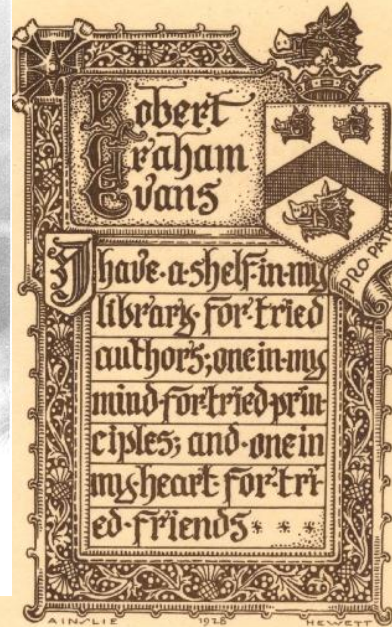 Robert
Graham
Evans
PRO PATR
I have·a·shelf·in·my
library·for·tried
authors; one in·my
mind·for·tried·prin-
ciples; and·one in
my·heart·for·tri-
ed·friends * * *
AINSLIE 1928 HEWETT